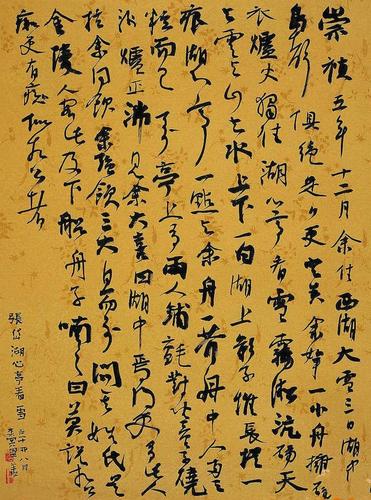 崇禎五年十二月余住西湖大雪三日湖中
人鳥聲俱絕是日更定矣余拏一小舟擁毳
衣爐火獨往湖心亭看雪霧凇沆碭天
與雲與山與水上下一白湖上影子惟長堤一
痕湖心亭一點與余舟一芥舟中人兩三
粒而已到亭上有兩人鋪氈對坐一童子燒
酒爐正沸見余大喜曰湖中焉得更有此人
拉余同飲余強飲三大白而別問其姓氏是
金陵人客此及下船舟子喃喃曰莫說相公
痴更有痴似相公者
張岱湖心亭看雪